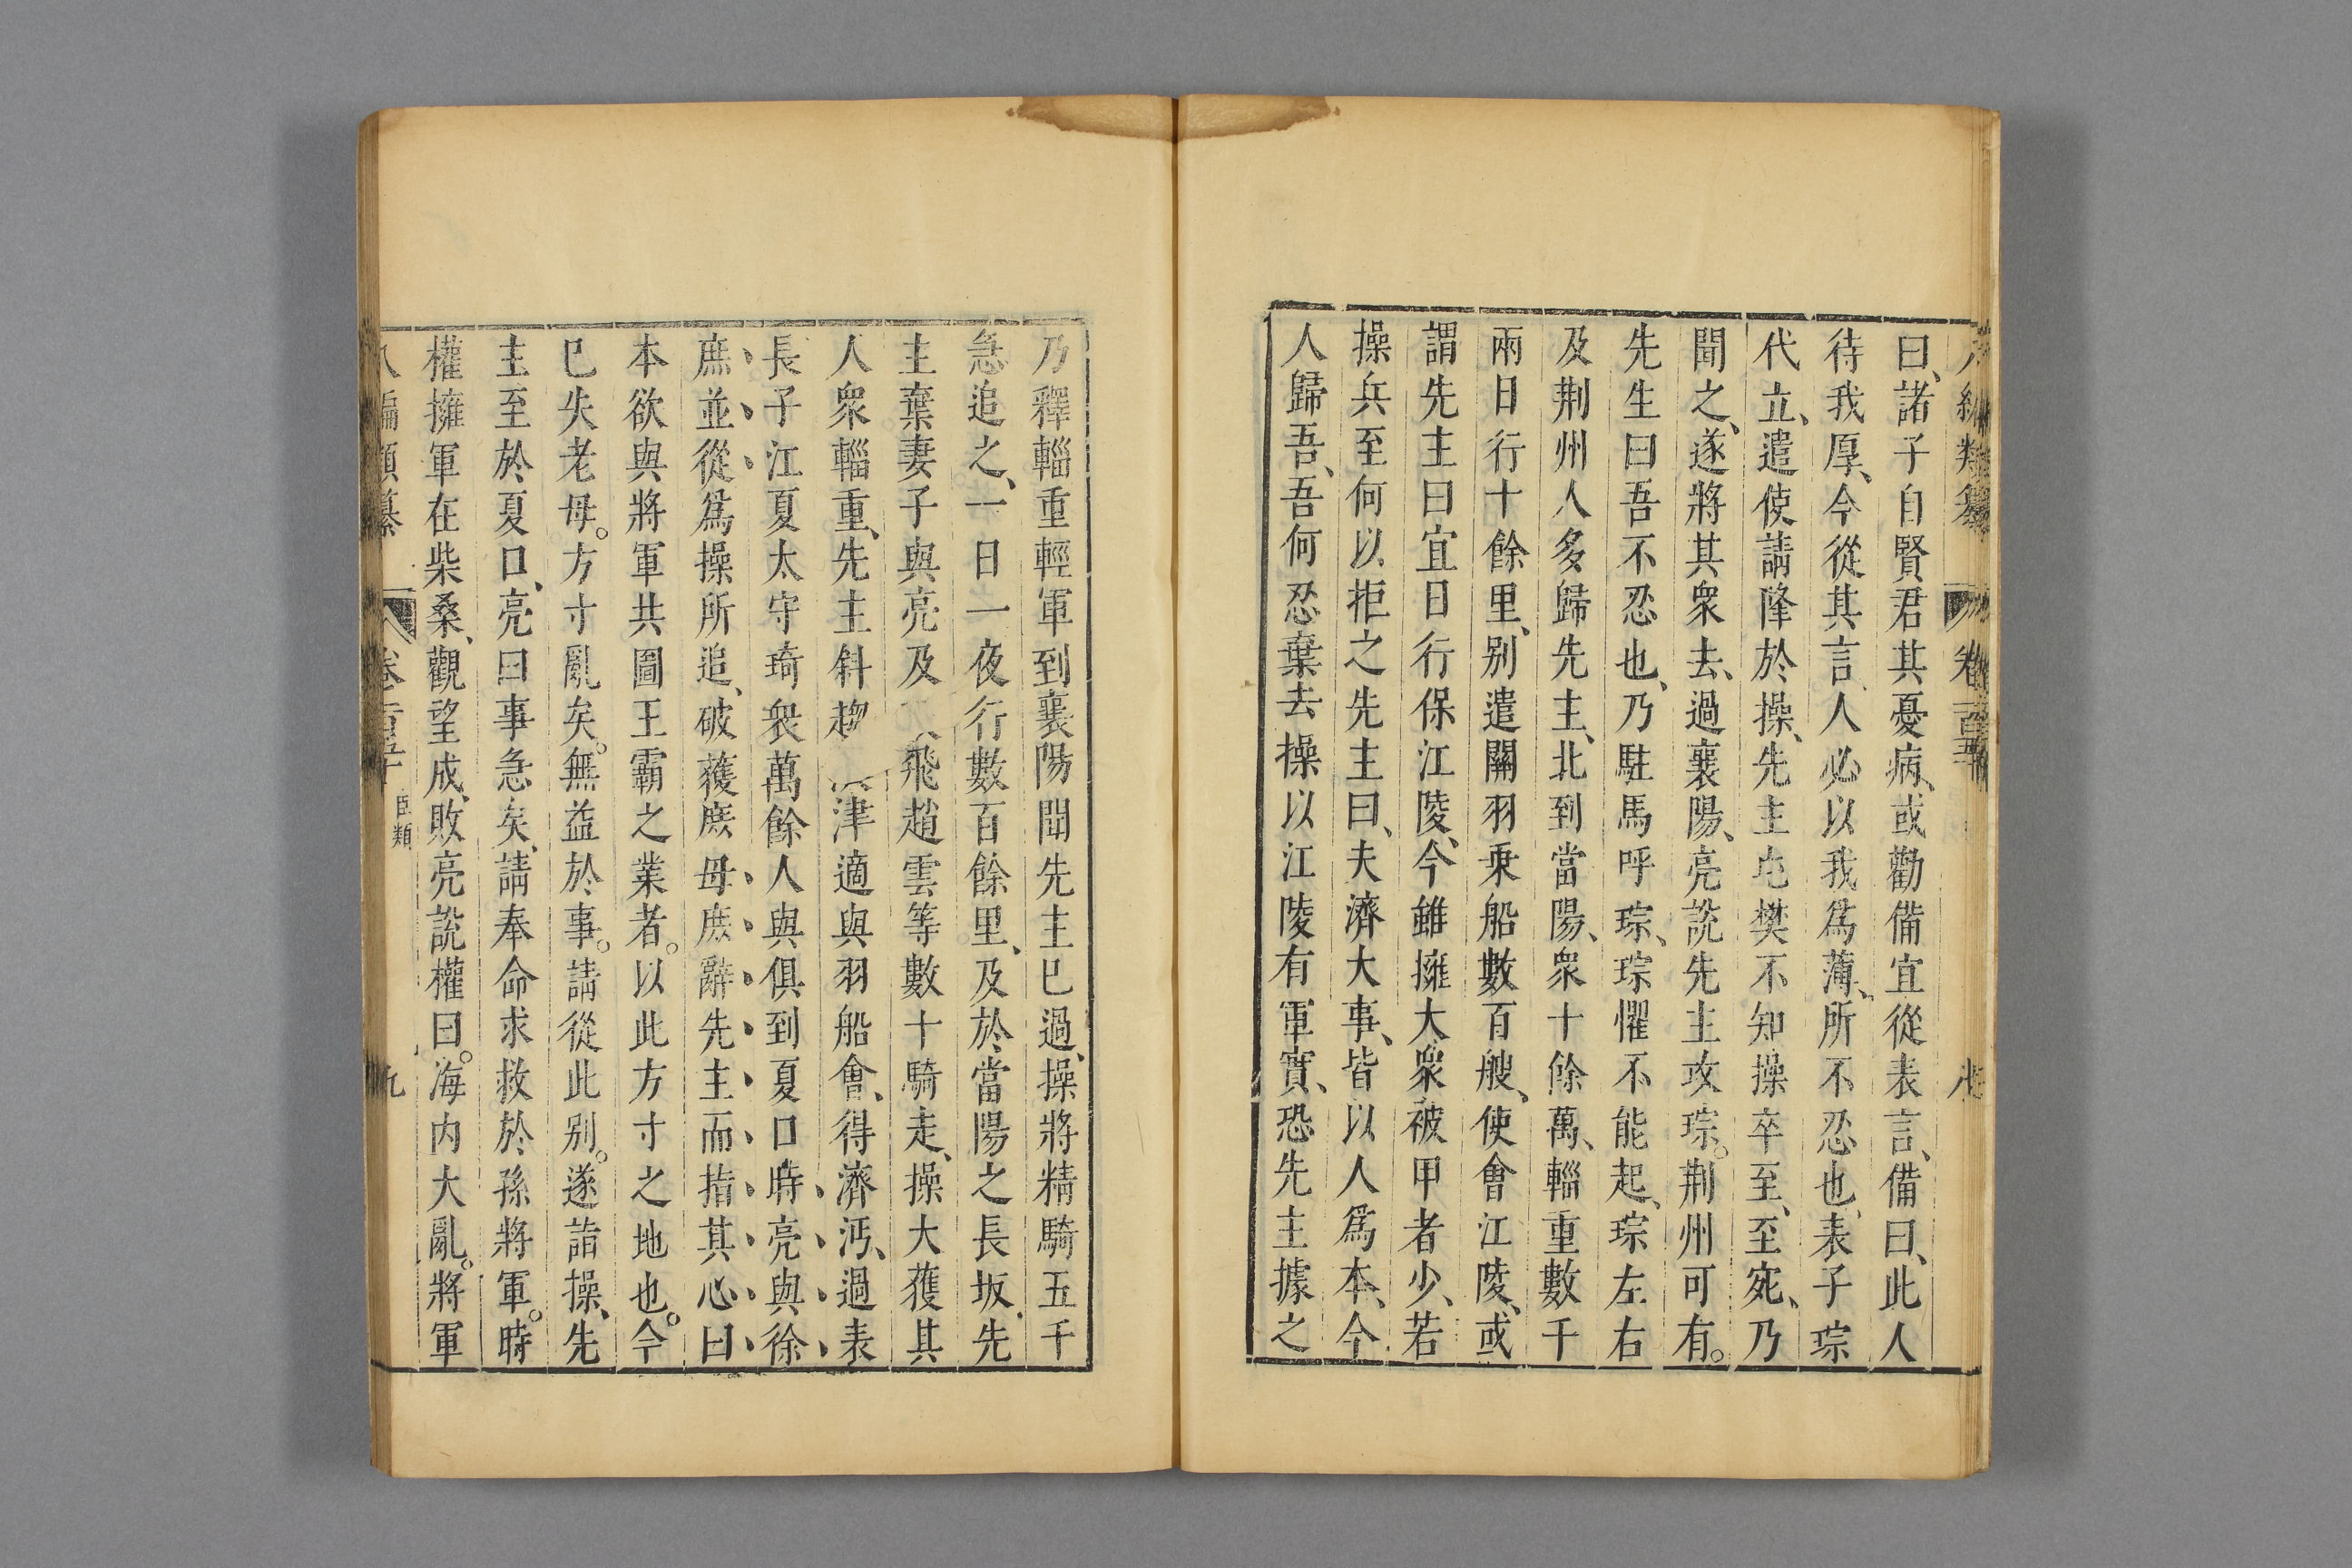 曰、諸子自賢君其憂病、或勸備宜從表言、備曰、此人
待我厚、今從其言、人必以我爲薄、所不忍也、表子琮
代立、遣使請降於操、先主屯樊不知操卒至、至宛、乃
聞之、遂將其衆去、過襄陽、亮說先主攻琮。荆州可有。
先生曰吾不忍也、乃駐馬呼琮、琮懼不能起、琮左右
及荆州人多歸先主、北到當陽、衆十餘萬、輜重數千
兩日行十餘里、别遣關羽乘船數百艘、使會江陵、或
謂先主曰宜日行保江陵、今雖擁大衆被甲者少、若
操兵至何以拒之先主曰、夫濟大事、皆以人爲本、今
人歸吾、吾何忍棄去操以江陵有軍實、恐先主據之
乃釋輜重輕軍到襄陽聞先主已過、操將精騎五千
急追之、一日一夜行數百餘里、及於當陽之長坂、先
主棄妻子與亮及 飛趙雲等數十騎走、操大獲其
人衆輜重、先主斜趨 津適與羽船會、得濟沔、過表
長子江夏太守琦衆萬餘人與俱到夏口時亮與徐
庶並從爲操所追、破獲庶母庶辭先主而指其心曰
本欲與將軍共圖王霸之業者。以此方寸之地也。今
已失老母。方寸亂矣。無益於事。請從此别。遂詣操、先
主至於夏口、亮曰事急矣、請奉命求救於孫將軍。時
權擁軍在柴桑、觀望成、敗亮說權曰。海内大亂。將軍
編類纂 卷一百五十 臣類 九